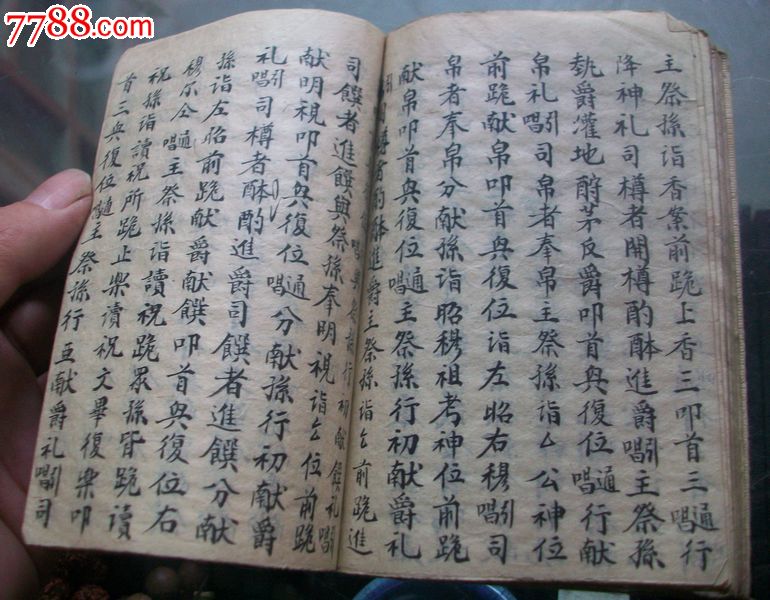 7788.com
主祭孫詣香案前跪上香三叩首三通唱行
降神礼司樽者開樽酌進爵引唱主祭孫
執爵灌地酹茅反爵叩首興復位通唱行献
帛礼引唱司帛者奉帛主祭孫詣厶公神位
前跪献帛叩首興復位詣左昭右穆引唱司
帛者奉帛分献孫詣昭穆祖考神位前跪
献帛叩首興復位通唱主祭孫行初献爵礼
者酌進爵主祭孫詣厶前跪進
行初献饌礼引唱
司饌者進饌興祭孫奉明視詣厶位前跪
献明視叩首興復位通唱分献孫行初献爵
礼引唱司樽者酌進爵司饌者進饌分献
孫詣左昭前跪献爵献饌叩首興復位右
穆尔仝通唱主祭孫詣讀祝跪衆孫皆跪讀
祝孫詣讀祝所跪止樂讀祝文畢復樂叩
首三興復位通唱主祭孫行亞献爵礼引唱司